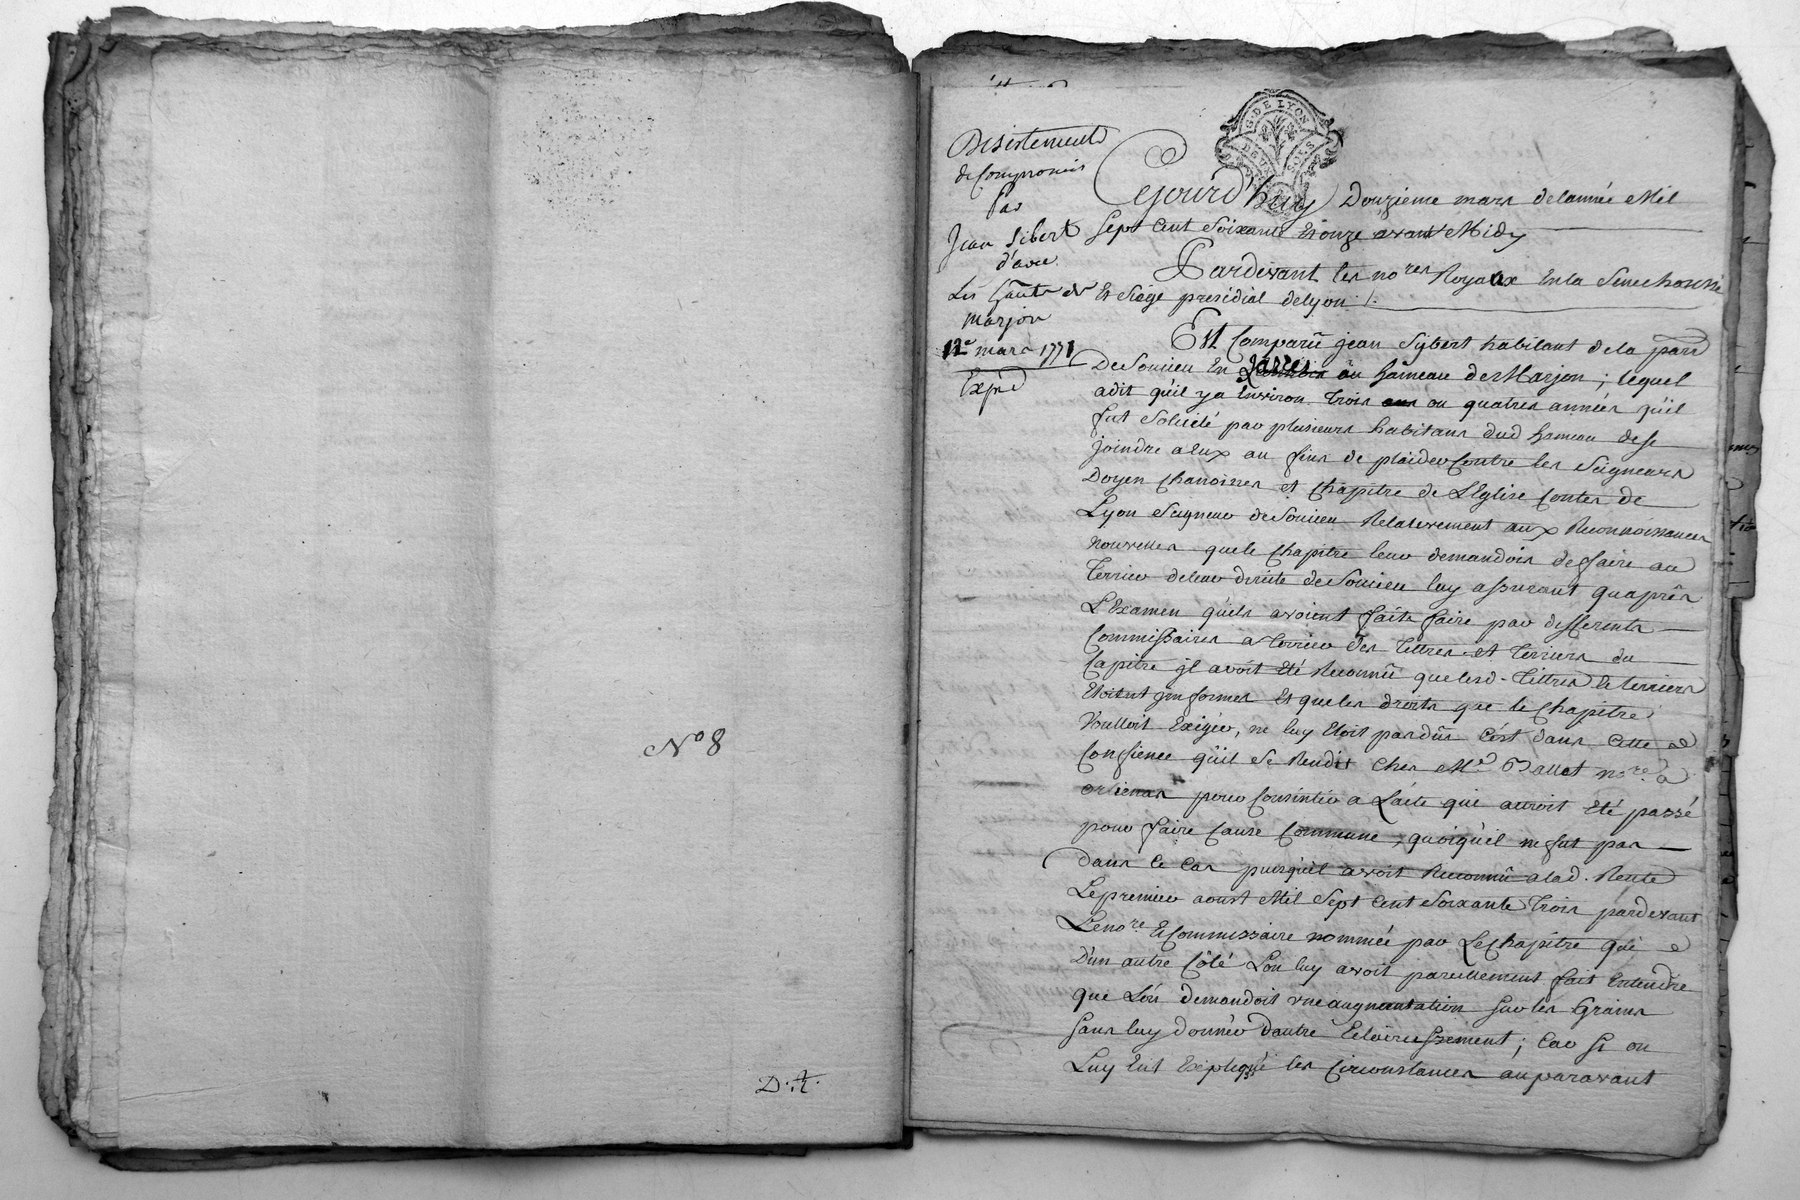 N° 8
D. R.
Desistement
de Compromis
par
Jean Sibert
d'avec
Les hâuts de
marjon
12e mars 1771
Exped
G. DE LYON
DEUX SOLS
Cejourd'huy Douzieme mars delannée Mil
Sept Cent Soixante Et onze avant Midy
Pardevant les nores Royaux En la Senechaussée
Et Siége presidial de Lyon /.
Est Comparû jean Sybert habitant de la parr
De Soucieu En jarest au hameau de Marjon ; lequel
adit qu'il y a Environ trois ou quatres années qu'il
fut Solicité par plusieurs habitans dud hameau de se
joindre a Eux au fins de plaider Contre les Seigneurs
Doyen Chanoines et Chapitre de L'Eglise Comtes de
Lyon Seigneur de Soucieu Relativement aux Reconnoissances
nouvelles que le Chapitre leur demandois de faire au
terrier de leur directe de Soucieu luy assurant qu'aprês
L'Examen qu'ils avoient fâits faire par differents
Commissaires a terrier des tittres et terriers du
Capitre jl avoit Eté Reconnû que lesd. tittres & terriers
Etoient jnformes Et que les droits que le Chapitre
Voulloit Exiger, ne luy Etoit pas dûs C'est dans Cette
Confience qu'il Se Rendit Ches Me Ballet nore a
orlienas pour Consintir a L'acte qui auroit Eté passé
pour faire Cause Commune, quoiqu'il ne fut pas
dans le Cas puisqu'il avoit Reconnû a lad. Rente
Le premier aoust Mil Sept Cent Soixante trois pardevant
Le nore & Commissaire nommée par Le Chapitre que
D'un autre Côté Lon luy avoit pareillement fait Entendre
que Lôn demandoit une augmentation Sur les Grains
Sans luy donnér dautre Eclaircissement ; Car Si on
Luy Eut Expliqué les Circonstances auparavant